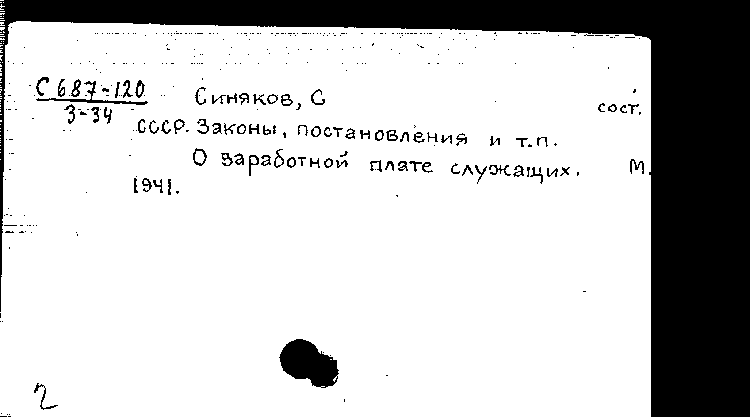 С 687-120
3-34
Синяков, С сост.
СССР. Законы, постановления и т.п.
О заработной плате служащих. М.
1941.
2